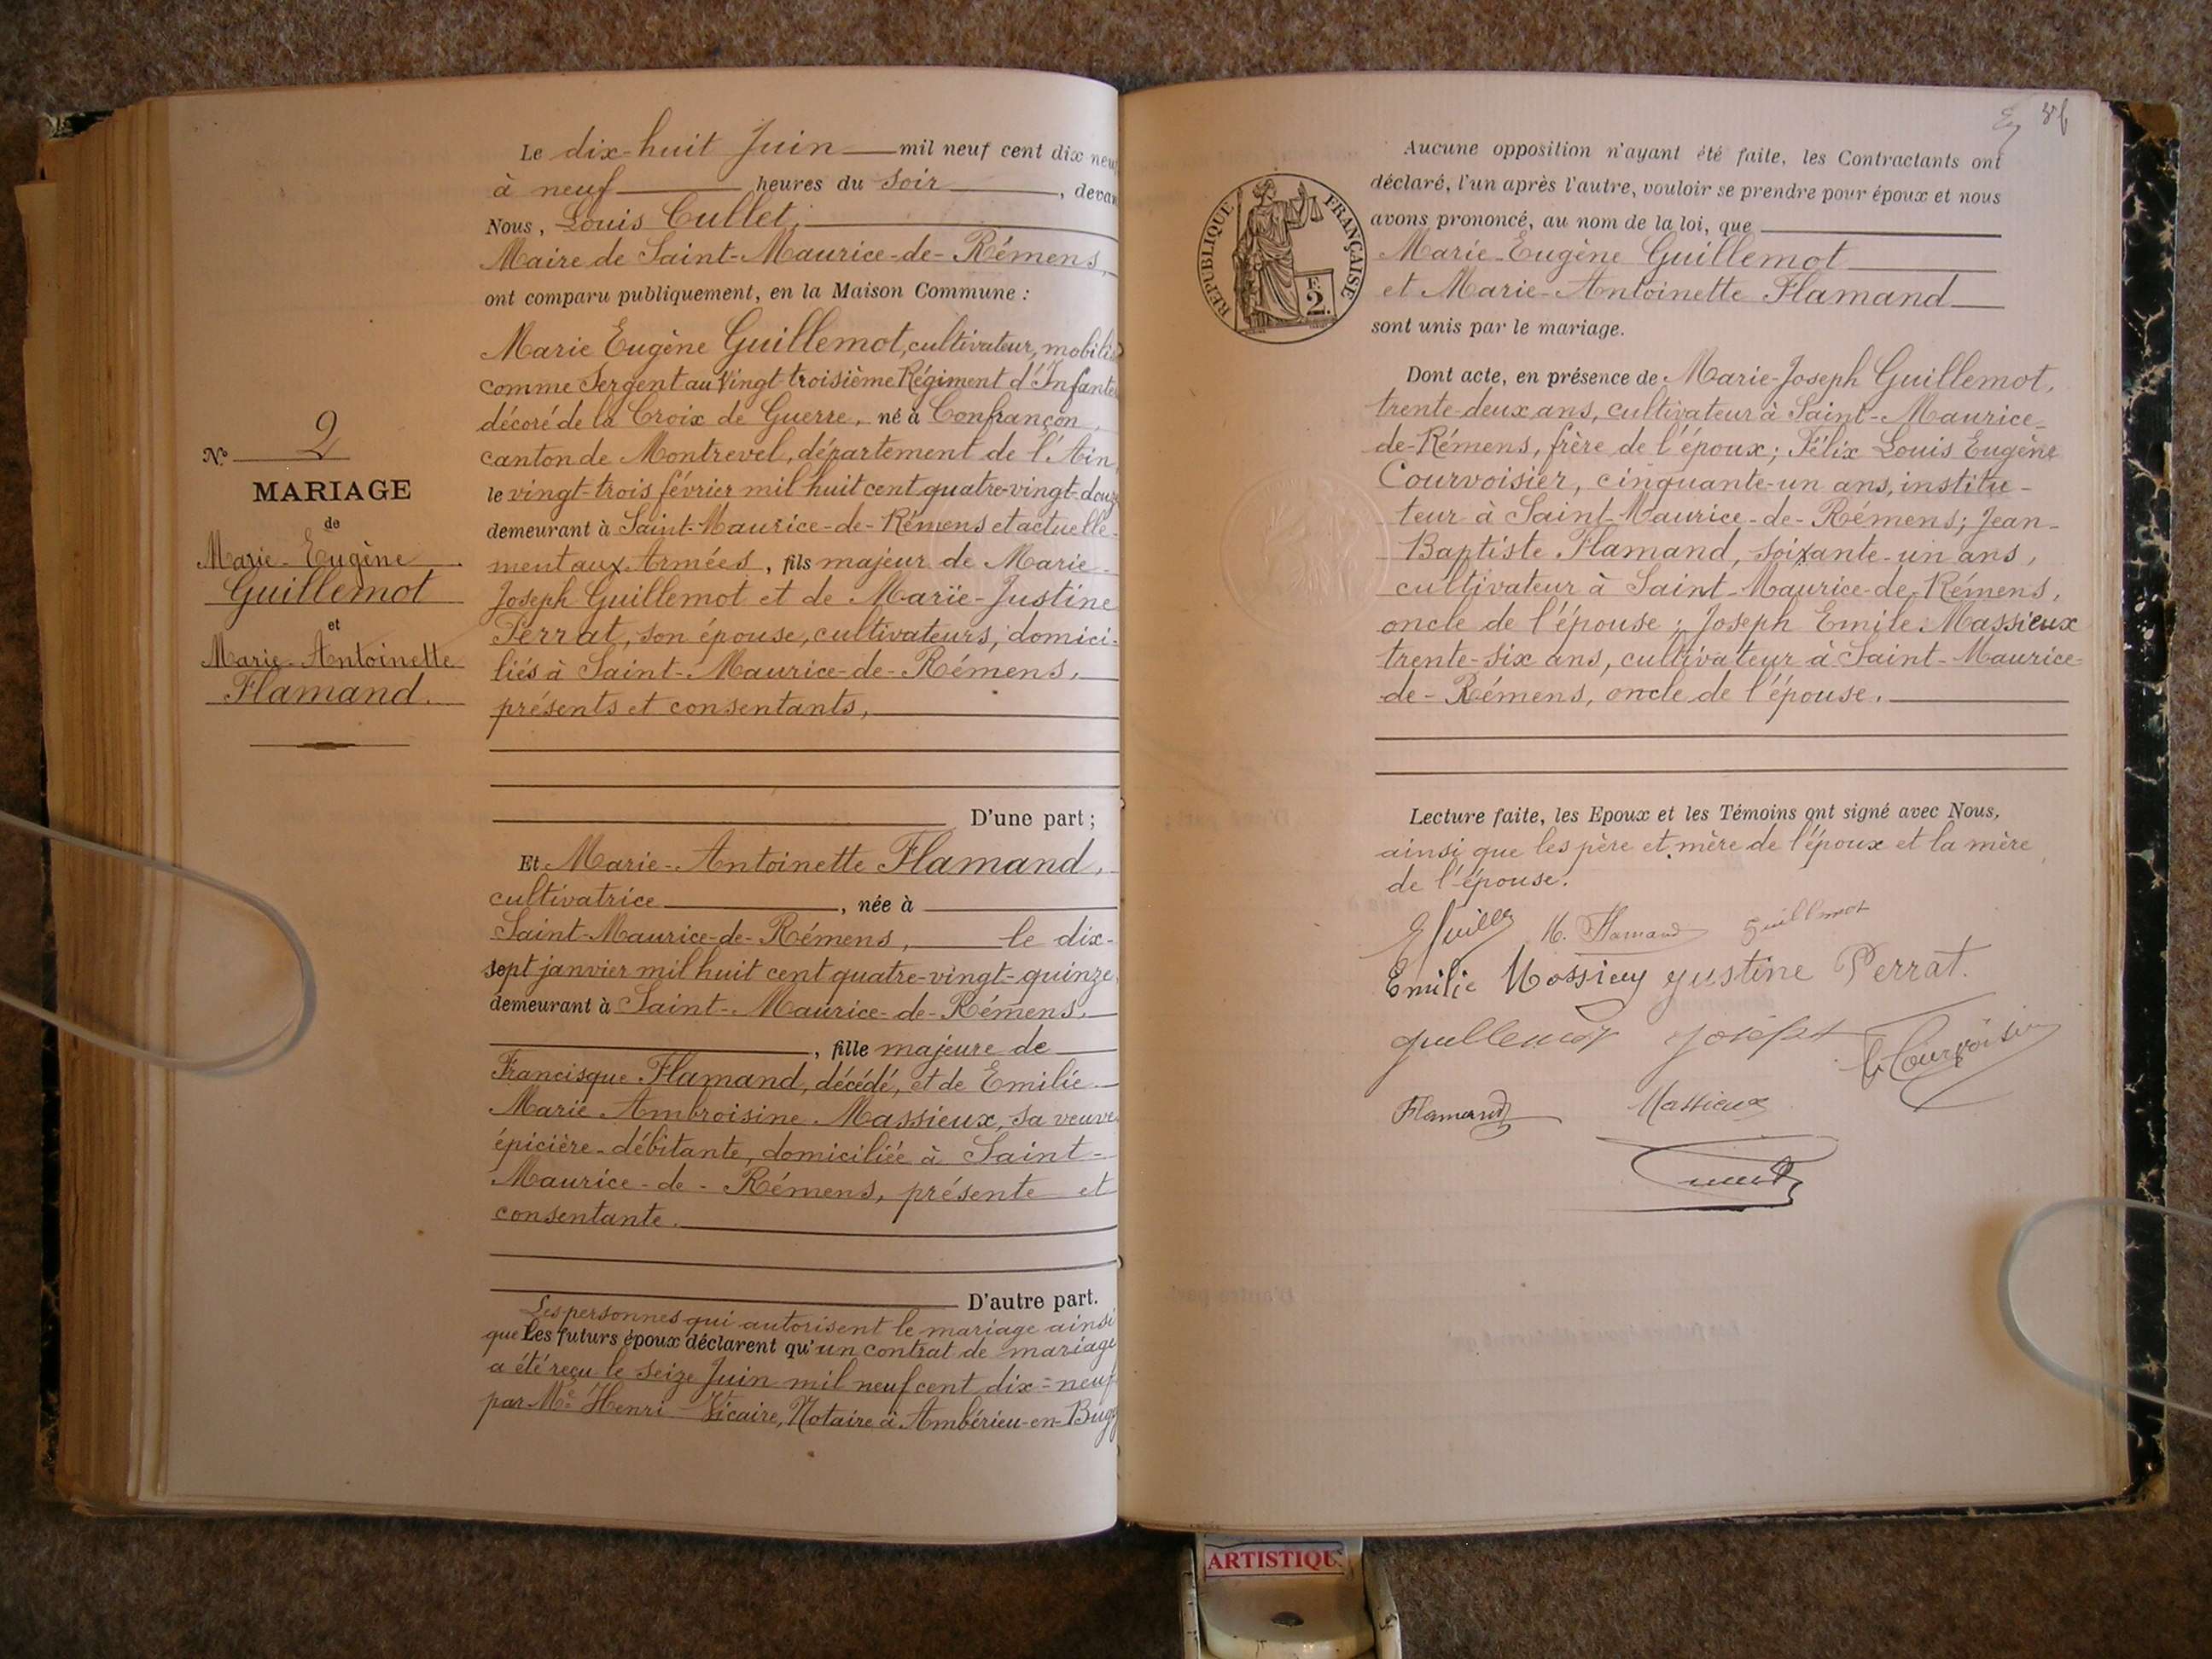 N° 2
MARIAGE
de
Marie-Eugène
Guillemot
et
Marie-Antoinette
Flamand.
Le dix-huit Juin mil neuf cent dix neuf
à neuf heures du soir, devan
Nous, Louis Cullet,
Maire de Saint-Maurice-de-Rémens,
ont comparu publiquement, en la Maison Commune :
Marie Eugène Guillemot, cultivateur, mobilis
comme Sergent au Vingt-troisième Régiment d'Infante
décoré de la Croix de Guerre, né à Confrançon,
canton de Montrevel, département de l'Ain,
le vingt-trois février mil huit cent quatre-vingt-douze
demeurant à Saint-Maurice-de-Rémens et actuelle-
ment aux Armées, fils majeur de Marie-
Joseph Guillemot et de Marie-Justine
Perrat, son épouse, cultivateurs, domici-
liés à Saint-Maurice-de-Rémens,
présents et consentants,
D'une part ;
Et Marie-Antoinette Flamand,
cultivatrice, née à
Saint-Maurice-de-Rémens, le dix-
sept janvier mil huit cent quatre-vingt-quinze,
demeurant à Saint-Maurice-de-Rémens,
, fille majeure de
Francisque Flamand, décédé, et de Emilie
Marie Ambroisine Massieux, sa veuve
épicière-débitante, domiciliée à Saint-
Maurice-de-Rémens, présente et
consentante.
D'autre part.
Les personnes qui autorisent le mariage ainsi
que Les futurs époux déclarent qu'un contrat de mariage
a été reçu le seize Juin mil neuf cent dix=neuf
par Me Henri Vicaire, Notaire à Ambérieu-en-Bugey
RÉPUBLIQUE FRANÇAISE
F.
2.
Aucune opposition n'ayant été faite, les Contractants ont
déclaré, l'un après l'autre, vouloir se prendre pour époux et nous
avons prononcé, au nom de la loi, que
Marie-Eugène Guillemot
et Marie-Antoinette Flamand
sont unis par le mariage.
Dont acte, en présence de Marie-Joseph Guillemot,
trente-deux ans, cultivateur à Saint-Maurice-
de-Rémens, frère de l'époux ; Félix Louis Eugène
Courvoisier, cinquante-un ans, institu-
teur à Saint-Maurice-de-Rémens ; Jean-
Baptiste Flamand, soixante-un ans,
cultivateur à Saint-Maurice-de-Rémens,
oncle de l'épouse ; Joseph Emile Massieux
trente-six ans, cultivateur à Saint-Maurice-
de-Rémens, oncle de l'épouse.
Lecture faite, les Epoux et les Témoins ont signé avec Nous,
ainsi que les père et mère de l'époux et la mère
de l'épouse.
M. Flamand Guillemot
Emilie Massieux Justine Perrat.
Guillemot Joseph Courvoisier
Flamand Massieux
ARTISTIQU